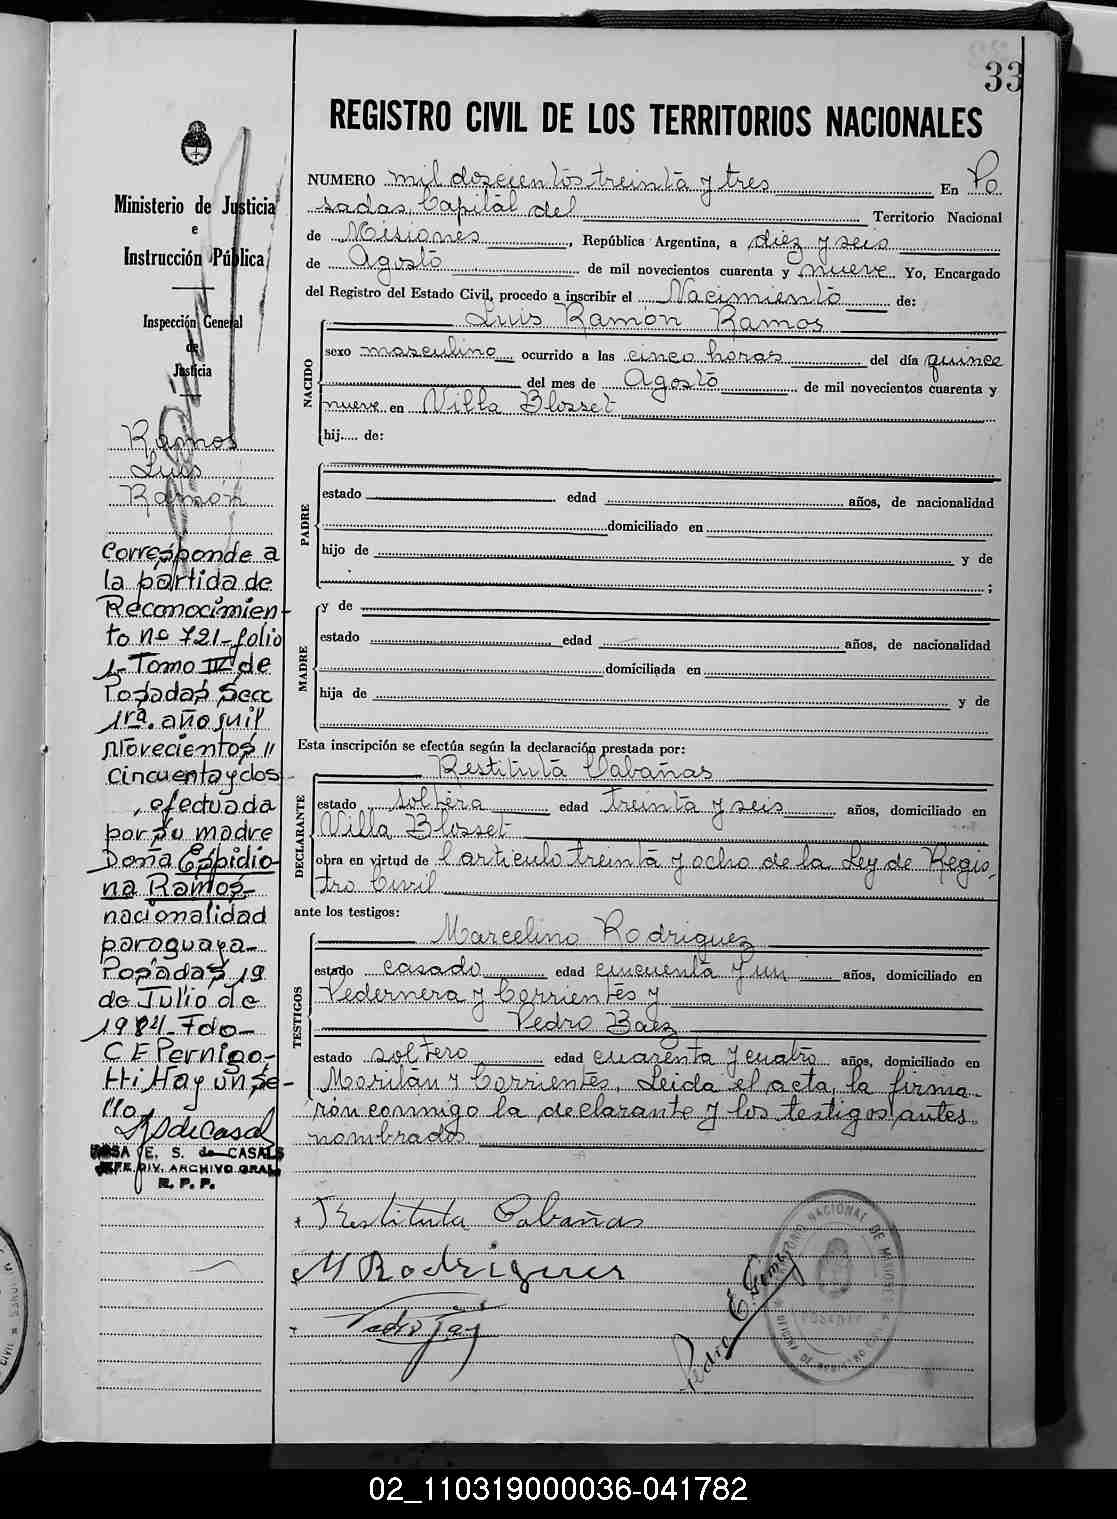 33
REGISTRO CIVIL DE LOS TERRITORIOS NACIONALES
NUMERO mil doscientos treinta y tres En Po
sadas, Capital del Territorio Nacional
de Misiones, República Argentina, a diez y seis
de Agosto de mil novecientos cuarenta y nueve Yo, Encargado
del Registro del Estado Civil, procedo a inscribir el Nacimiento de:
NACIDO
Luis Ramon Ramos
sexo masculino ocurrido a las cinco horas del día quince
del mes de Agosto de mil novecientos cuarenta y
nueve en Villa Blosset
hij..... de:
PADRE
estado edad años, de nacionalidad
domiciliado en
hijo de y de
;
MADRE
y de
estado edad años, de nacionalidad
domiciliada en
hija de y de
Esta inscripción se efectúa según la declaración prestada por:
DECLARANTE
Restituta Cabañas
estado soltera edad treinta y seis años, domiciliado en
Villa Blosset
obra en virtud de l'articulo treinta y ocho de la Ley de Regis-
tro Civil
ante los testigos:
TESTIGOS
Marcelino Rodriguez
estado casado edad cincuenta y un años, domiciliado en
Pedernera y Corrientes y
Pedro Baez
estado soltero edad cuarenta y cuatro años, domiciliado en
y Corrientes. Leida el acta, la firma-
rón conmigo la declarante y los testigos antes
nombrados
Restituta Cabañas
M Rodriguez
Pedro
Pedro E. Gomez
TERRITORIO NACIONAL DE MISIONES
POSADAS
Ministerio de Justicia
e
Instrucción Pública
Inspección General
de
Justicia
Ramos
Luis
Ramón
Corresponde a
la partida de
Reconocimien-
to nº 721-folio
1-Tomo IV de
Posadas Secc
1ra. año mil
novecientos
cincuenta y dos-
, efectuada
por su madre
Doña Espidio-
na Ramos-
nacionalidad
paraguaya-
Posadas 19
de Julio de
1984-Fdo-
C E Pernigo-
tti Hay un se-
llo
ROSA E. S. de CASALS
JEFE DIV. ARCHIVO GRAL.
R. P. P.
02_110319000036-041782